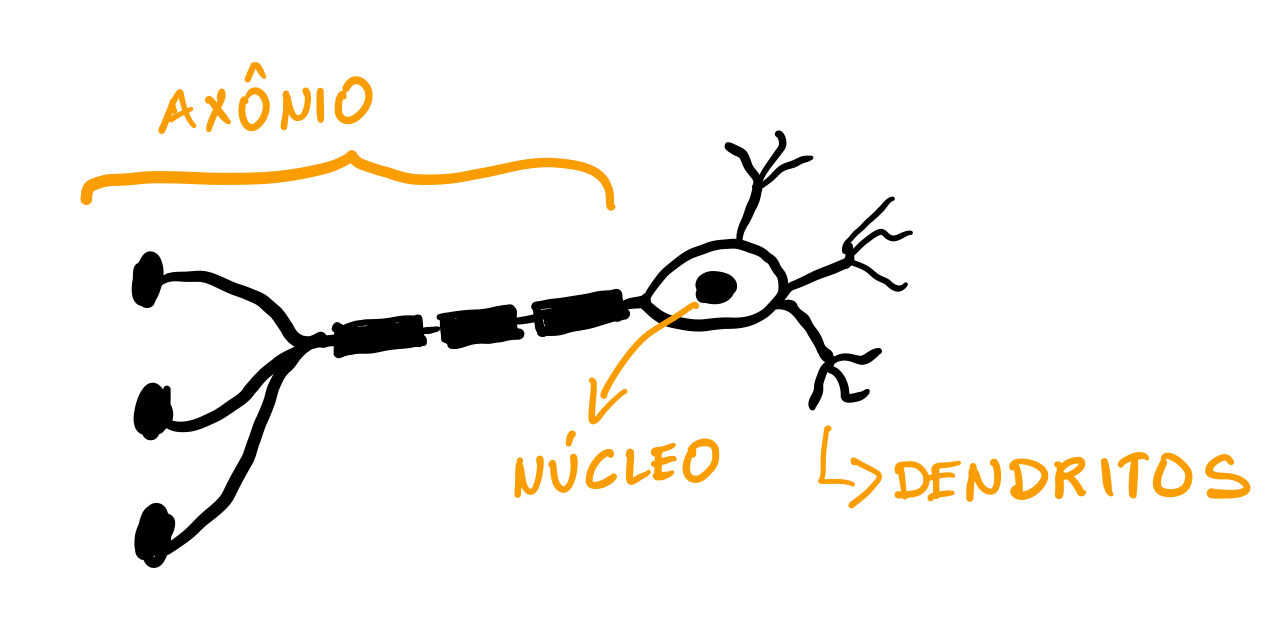 AXÔNIO
NÚCLEO
DENDRITOS